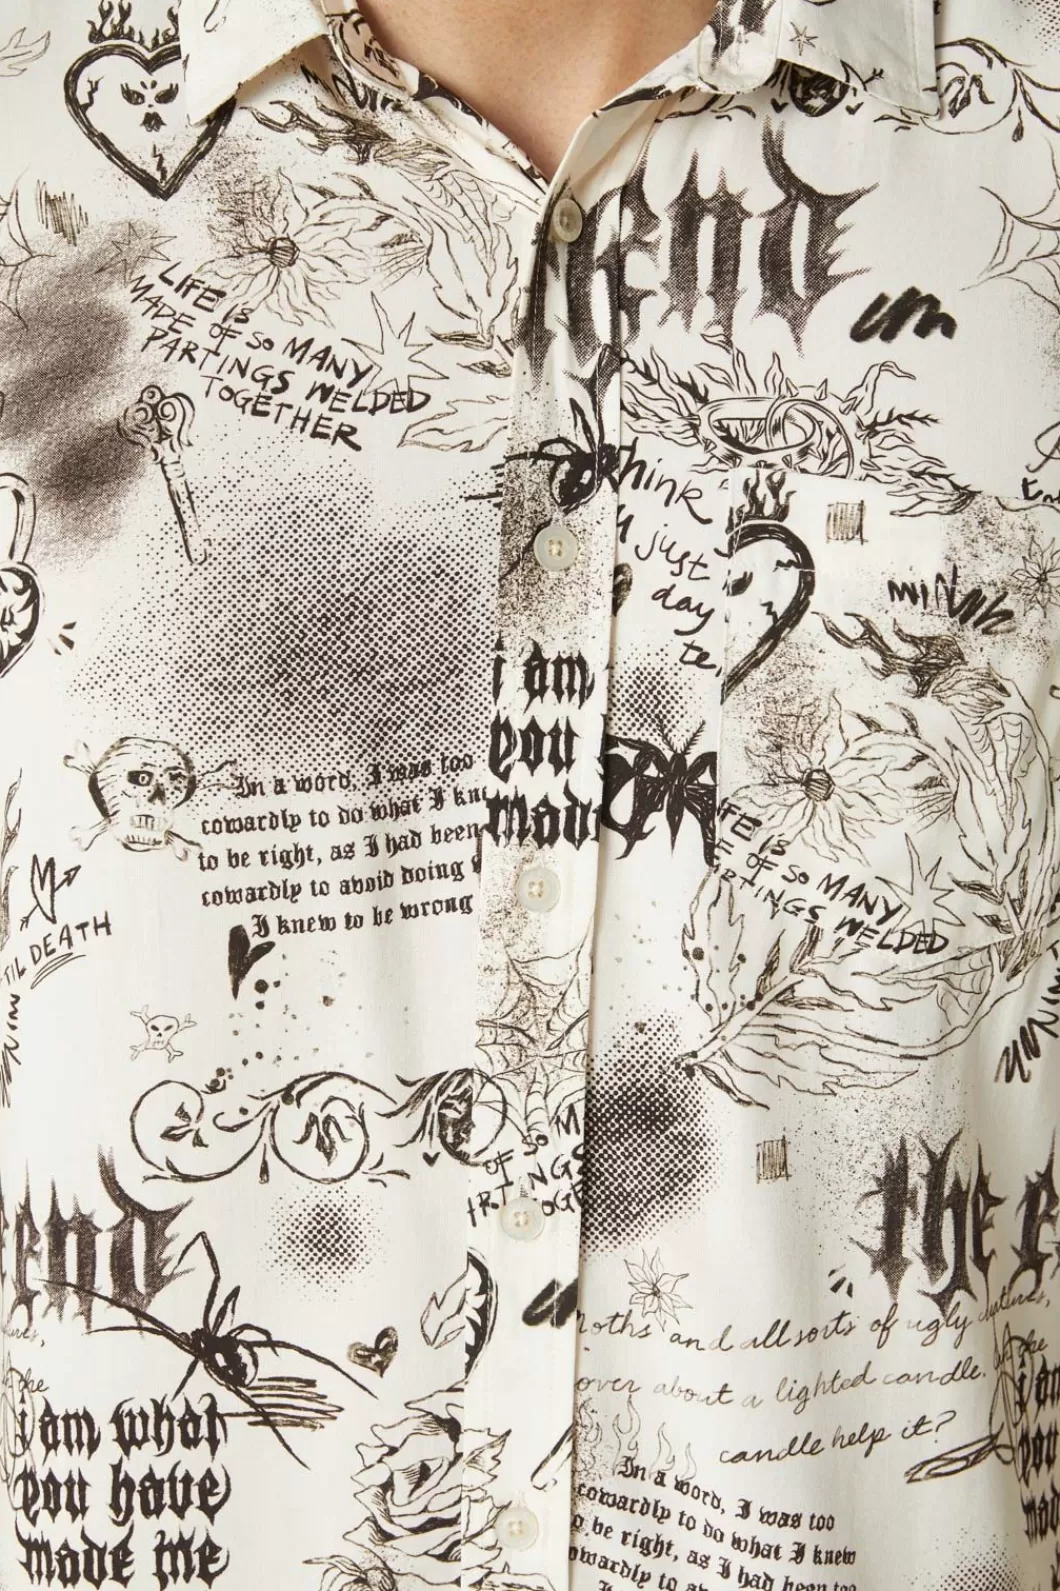 end
LIFE IS
MADE OF SO MANY
PARTINGS WELDED
TOGETHER
think
just
day
i am
you
made
In a word, I was too
cowardly to do what I kn
to be right, as I had been
cowardly to avoid doing
I knew to be wrong
FE IS
E OF SO MANY
RTINGS WELDED
'TIL DEATH
OF SO M
RT NGS
OGE
end
the e
moths and all sorts of ugly creatures,
over about a lighted candle.
candle help it?
the
i am what
you have
made me
In a word, I was too
cowardly to do what I knew
o be right, as I had been too
owardly to av
i am
you
mad